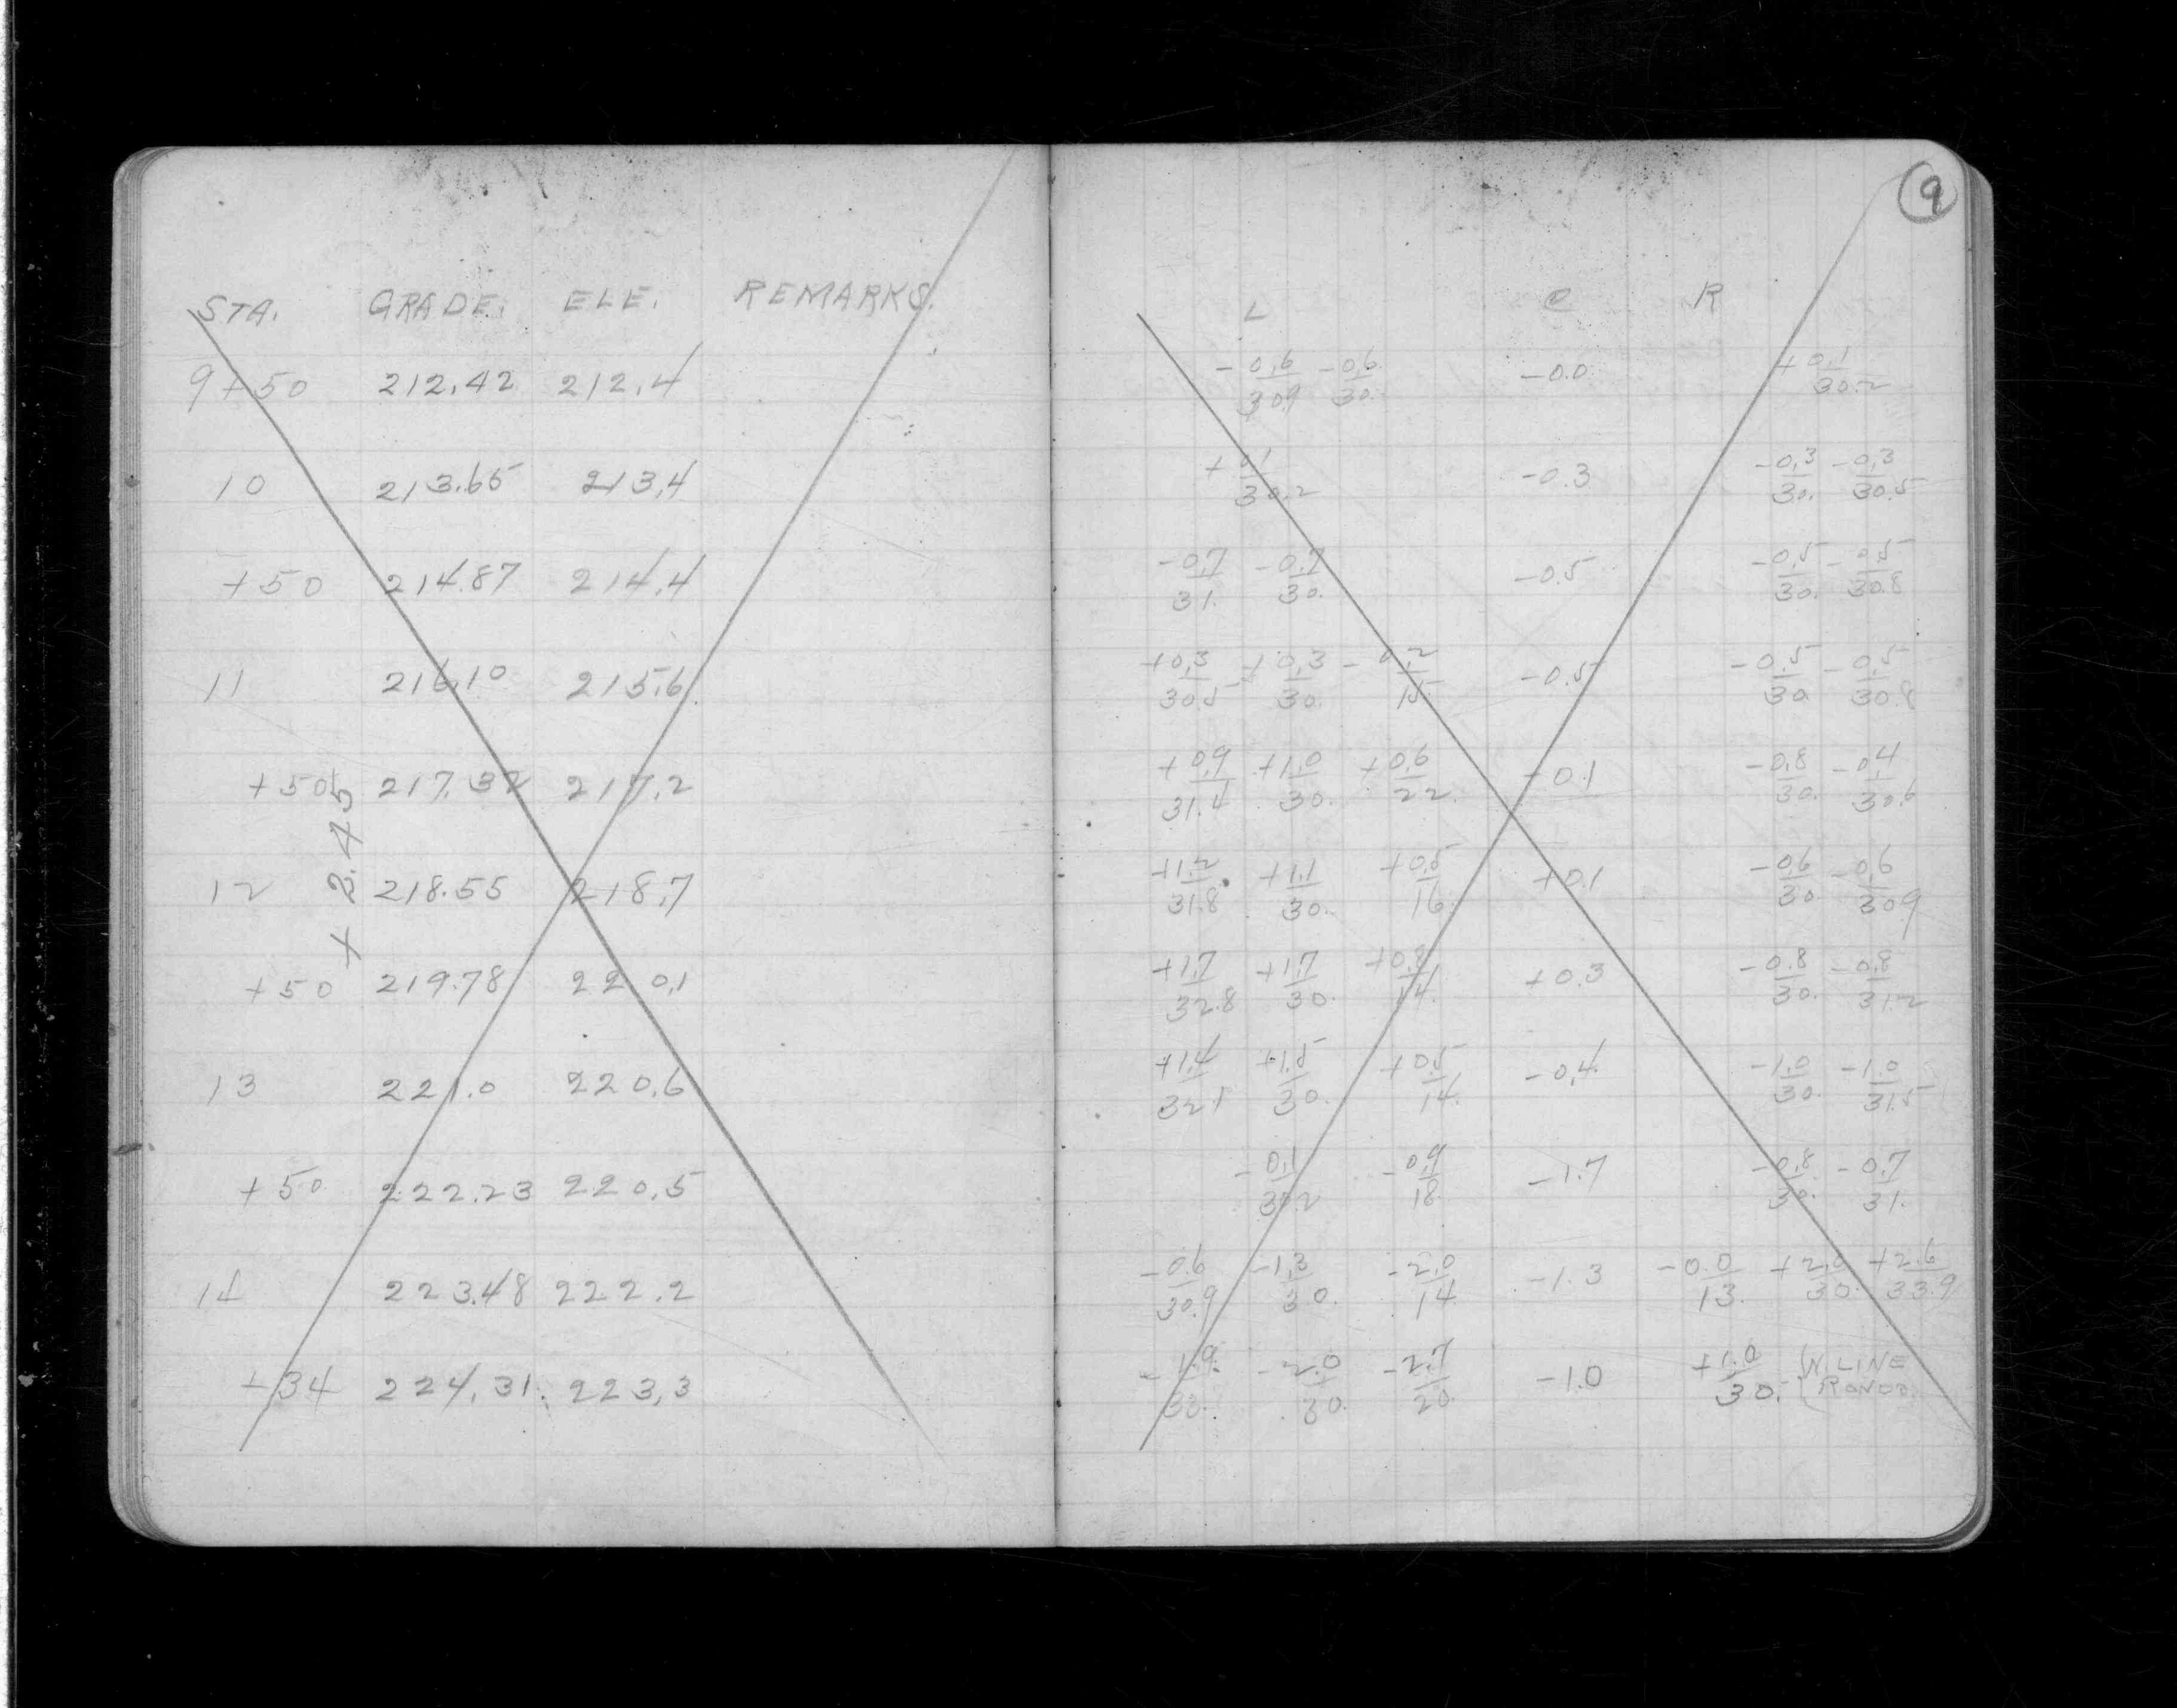 9
STA. GRADE. ELE. REMARKS.
9+50 212.42 212.4
10 213.65 213.4
+50 214.87 214.4
11 216.10 215.6
+50 217.32 217.2
+ 2.45
12 218.55 218.7
+50 219.78 220.1
13 221.0 220.6
+50 222.23 220.5
14 223.48 222.2
+34 224.31. 223.3
L C R
-0.6/30.9 -0.6/30. -0.0 +0.1/30.2
+0.1/30.2 -0.3 -0.3/30. -0.3/30.5
-0.7/31. -0.7/30. -0.5 -0.5/30. -0.5/30.8
+0.3/30.5 +0.3/30. -0.2/15. -0.5 -0.5/30 -0.5/30.8
+0.9/31.4 +1.0/30. +0.6/22. -0.1 -0.8/30. -0.4/30.6
+1.2/31.8 +1.1/30. +0.5/16. +0.1 -0.6/30 -0.6/30.9
+1.7/32.8 +1.7/30. +0.8/14. +0.3 -0.8/30. -0.8/31.2
+1.4/32.1 +1.5/30. +0.5/14. -0.4. -1.0/30. -1.0/31.5
-0.1/30.2 -0.9/18. -1.7 -0.8/30. -0.7/31.
-0.6/30.9 -1.3/30. -2.0/14. -1.3 -0.0/13. +2.0/30. +2.6/33.9
-1.9/33. -2.0/30. -2.7/20. -1.0 +1.0/30. (N. LINE